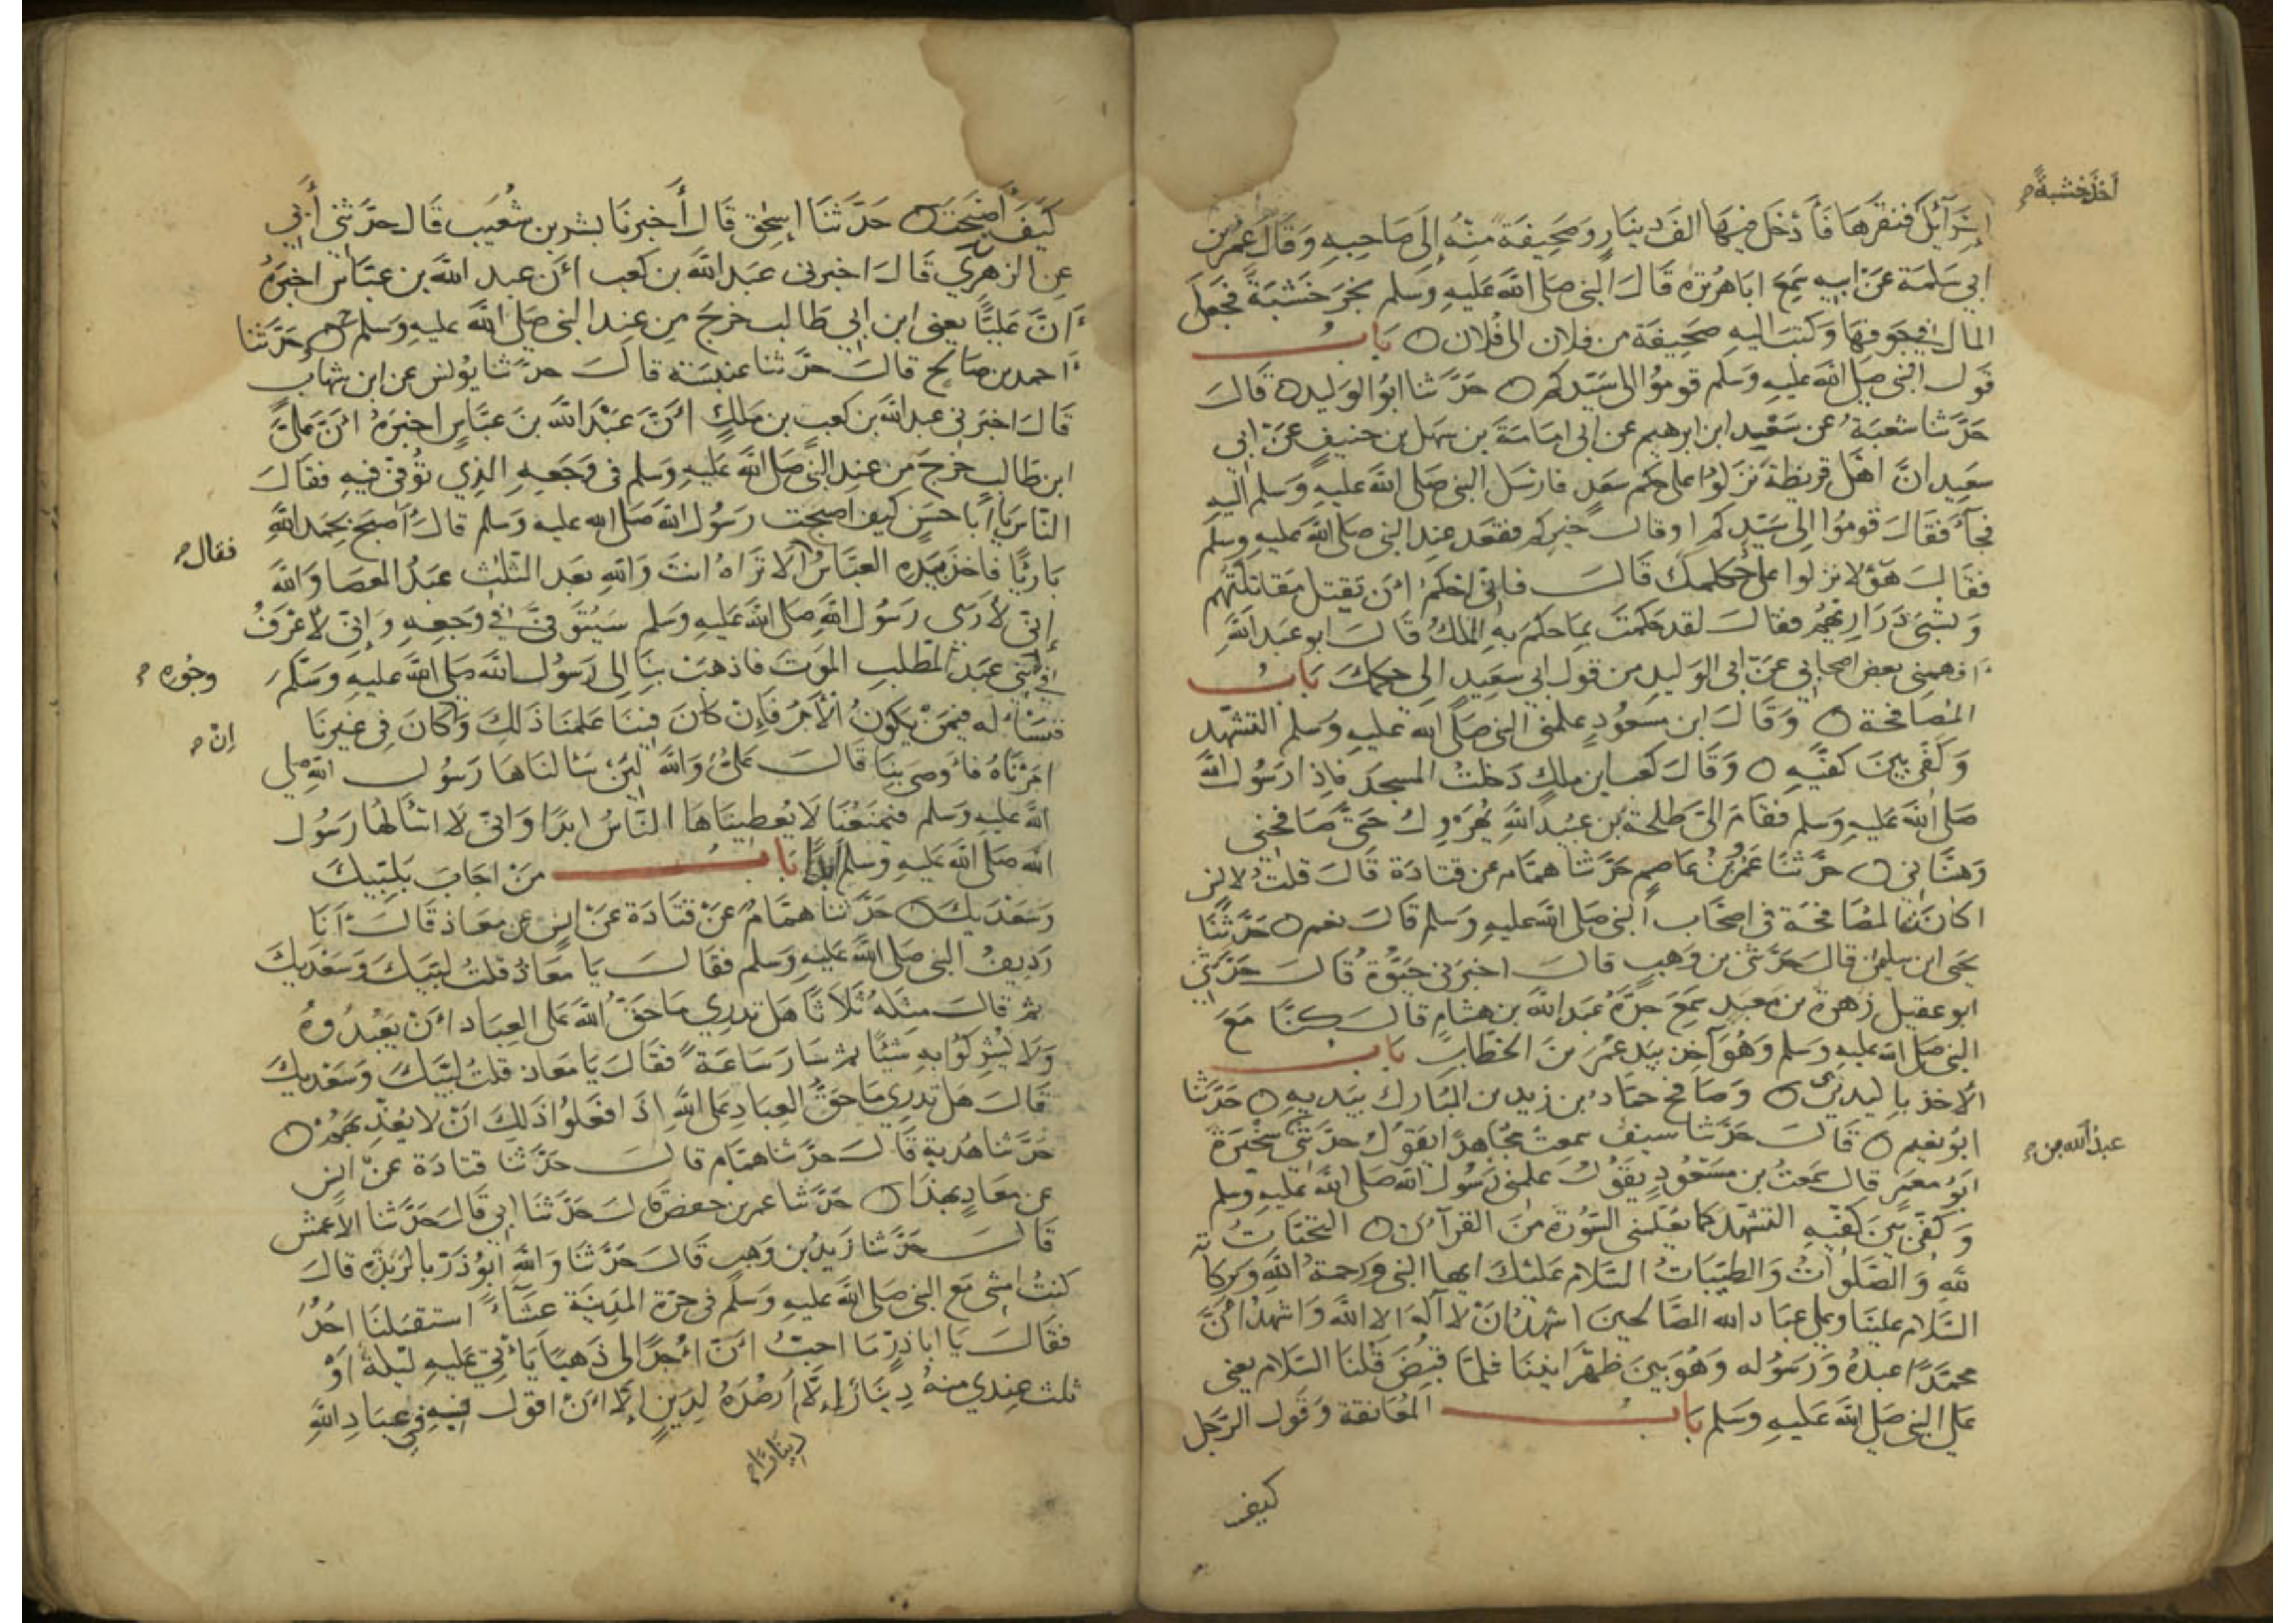 أخذ خشبةً
إسرآئل فنقرها فأدخل فيها الف دينار وصحيفة منه إلى صاحبه وقال عمر بن
ابي سلمة عن ابيه سمع اباهريرة قال النبي صلى الله عليه وسلم نجر خشبة فجعل
المال في جوفها وكتب اليه صحيفة من فلان الى فلان باب
قول النبي صلى الله عليه وسلم قوموا الى سيدكم حدثنا ابو الوليد قال
حدثنا شعبة عن سعيد ابن ابرهيم عن ابي امامة بن سهل بن حنيف عن ابي
سعيد ان اهل قريظة نزلوا على حكم سعد فارسل النبي صلى الله عليه وسلم اليه
فجآء فقال قوموا الى سيدكم او قال خيركم فقعد عند النبي صلى الله عليه وسلم
فقال هؤلا نزلوا على حكمك قال فانى احكم ان تقتل مقاتلتهم
وتسبى ذراريهم فقال لقد حكمت بما حكم به الملك قال ابو عبد الله
افهمنى بعض اصحابي عن ابى الوليد من قول ابي سعيد الى حكمك باب
المصافحة وقال ابن مسعود علمني النبي صلى الله عليه وسلم التشهد
وكفى بين كفيه وقال كعب ابن ملك دخلت المسجد فاذا رسول الله
صلى الله عليه وسلم فقام الى طلحة بن عبيد الله يهرول حتى صافحنى
وهنانى حدثنا عمرو بن عاصم حدثنا همام عن قتادة قال قلت لانس
اكانت المصافحة فى اصحاب النبي صلى الله عليه وسلم قال نعم حدثنا
يحيى ابن سليمن قال حدثنى بن وهب قال اخبرنى حيوة قال حدثنى
ابو عقيل زهرة بن معبد سمع جده عبد الله بن هشام قال كنا مع
النبي صلى الله عليه وسلم وهو آخذ بيد عمر بن الخطاب باب
الاخذ باليدين وصافح حماد بن زيد بن المبارك بيديه حدثنا
ابو نعيم قال حدثنا سيف سمعت مجاهدًا يقول حدثنى سخبرة
عبد الله بن
ابو معمر قال سمعت بن مسعود يقول علمنى رسول الله صلى الله عليه وسلم
وكفى بين كفيه التشهد كما يعلمنى السورة من القرآن التحيات
لله والصلوات والطيبات السلام عليك ايها النبي ورحمة الله وبركا ته
السلام علينا وعلى عباد الله الصالحين اشهد ان لا آله الا الله واشهد ان
محمدًا عبده ورسوله وهو بين ظهرانينا فلما قبض قلنا السلام يعني
على النبي صلى الله عليه وسلم باب المعانقة وقول الرجل
كيف
كيف أصبحت حدثنا اسحق قال أخبرنا بشر بن شعيب قال حدثني أبي
عن الزهري قال اخبرني عبد الله بن كعب ان عبد الله بن عباس اخبره
ان عليًّا يعني ابن ابي طالب خرج من عند النبي صلى الله عليه وسلم ح حدثنا
احمد بن صالح قال حدثنا عنبسة قال حدثنا يونس عن ابن شهاب
قال اخبرني عبد الله بن كعب بن ملك ان عبد الله بن عباس اخبره ان علي
ابن طالب خرج من عند النبي صلى الله عليه وسلم فى وجعه الذي توفى فيه فقال
الناس يا ابا حسن كيف اصبحت رسول الله صلى الله عليه وسلم قال اصبح بحمد الله
فقال
بارئًا فاخذ بيده العباس الا تراه انت والله بعد الثلث عبد العصا والله
إنى لأرى رسول الله صلى الله عليه وسلم سيتوفى في وجعه وإنى لاعرف
وجوه
في بنى عبد المطلب الموت فاذهب بنا الى رسول الله صلى الله عليه وسلم
فنسأله فيمن يكون الأمر فإن كان فينا علمنا ذلك وكان فى غيرنا
إن
امرناه فأوصى بنا قال علي والله لئن سالناها رسول الله صلى
الله عليه وسلم فيمنعنا لا يعطيناها الناس ابدًا وانى لا اسألها رسول
الله صلى الله عليه وسلم ابدا باب من اجاب بلبيك
وسعديك حدثنا همام عن قتادة عن انس عن معاذ قال أنا
رديف النبي صلى الله عليه وسلم فقال يا معاذ قلت لبيك وسعديك
ثم قال مثله ثلاثًا هل تدري ما حق الله على العباد ان يعبدوه
ولا يشركوا به شيًا ثم سار ساعة فقال يا معاذ قلت لبيك وسعديك
قال هل تدري ما حق العباد على الله اذا فعلوا ذلك ان لا يعذبهم
حدثنا هدبة قال حدثنا همام قال حدثنا قتادة عن انس
عن معاذ بهذا حدثنا عمر بن حفص قال حدثنا ابي قال حدثنا الاعمش
قال حدثنا زيد بن وهب قال حدثنا والله ابو ذر بالربذة قال
كنت امشي مع النبي صلى الله عليه وسلم في حرة المدينة عشآءً استقبلنا احد
فقال يا اباذر ما احب ان احدًا لى ذهبًا يأتي عليه ليلة او
ثلث عندي منه دينار إلا أرصده لدين إلا ان اقول فيه في عباد الله
دينارًا